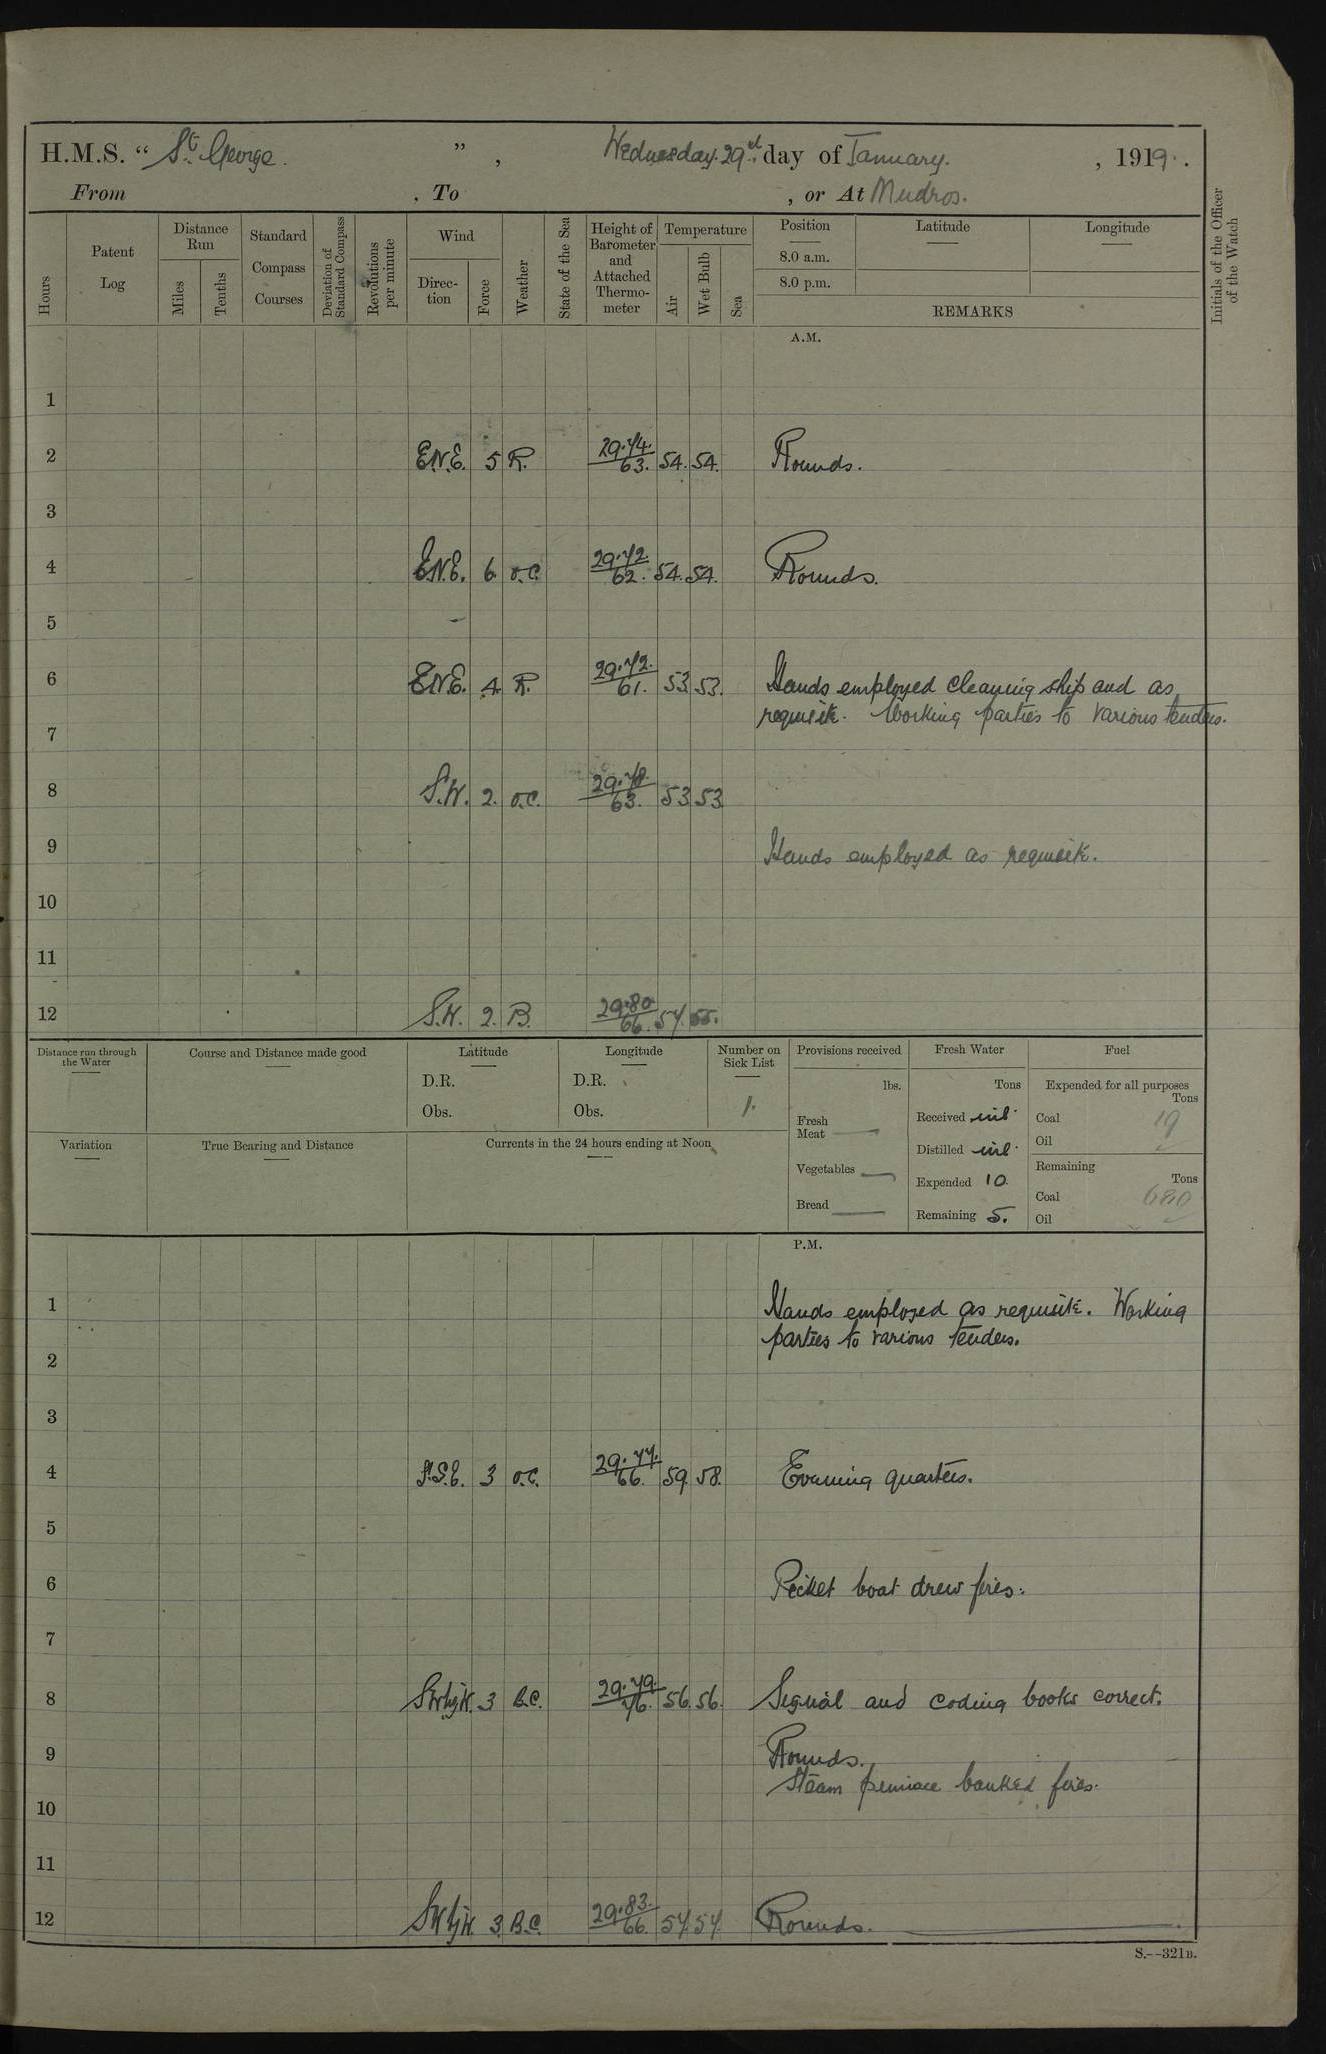 H.M.S. “ St. George. ” , Wednesday. 29th day of January. , 1919.
From , To , or At Mudros.
Hours
Patent Log
Distance Run
Miles
Tenths
Standard Compass Courses
Deviation of Standard Compass
Revolutions per minute
Wind
Direc-tion
Force
Weather
State of the Sea
Height of Barometer and Attached Thermo-meter
Temperature
Air
Wet Bulb
Sea
Position
8.0 a.m.
8.0 p.m.
Latitude
Longitude
REMARKS
Initials of the Officer of the Watch
A.M.
1
2 E.N.E. 5 R. 29.74. 63. 54. 54. Rounds.
3
4 E.N.E. 6 o.c. 29.72. 62. 54. 54. Rounds.
5
6 E.N.E. 4. R. 29.72. 61. 53. 53. Hands employed cleaning ship and as
requisite. Working parties to various tenders.
7
8 S.W. 2. o.c. 29.78. 63. 53 53
9 Hands employed as requisite.
10
11
12 S.W. 2. B. 29.80 66. 57. 55.
Distance run through the Water
Course and Distance made good
Latitude
D.R.
Obs.
Longitude
D.R.
Obs.
Number on Sick List
1.
Provisions received
lbs.
Fresh Meat
Vegetables
Bread
Fresh Water
Tons
Received nil.
Distilled nil.
Expended 10.
Remaining 5.
Fuel
Expended for all purposes
Tons
Coal 19
Oil
Remaining
Tons
Coal 680
Oil
Variation
True Bearing and Distance
Currents in the 24 hours ending at Noon
P.M.
1 Hands employed as requisite. Working
parties to various tenders.
2
3
4 S.S.E. 3 o.c. 29.77. 66. 59. 58. Evening quarters.
5
6 Picket boat drew fires.
7
8 SWbyW. 3 B.C. 29.79. 76. 56. 56. Signal and coding books correct.
9 Rounds.
Steam pinnace banked fires.
10
11
12 SWbyW. 3. B.C. 29.83. 66. 57. 57. Rounds.
S.--321B.